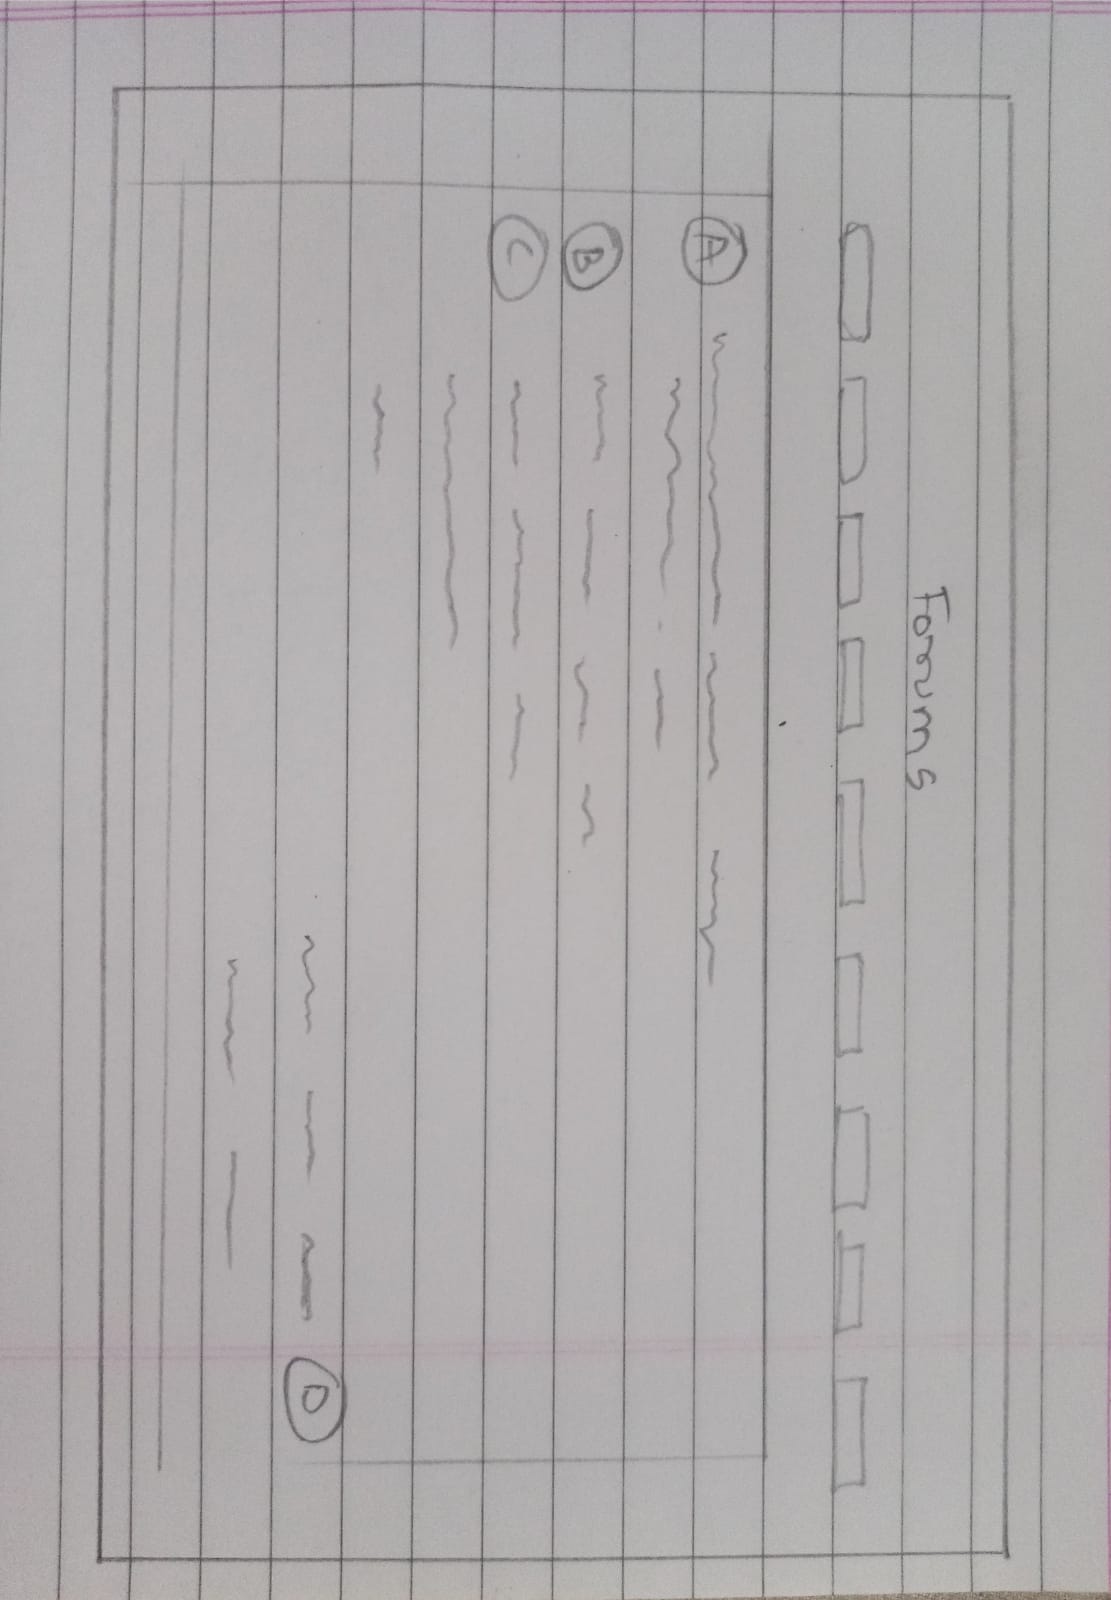 Forums
A
B
C
D